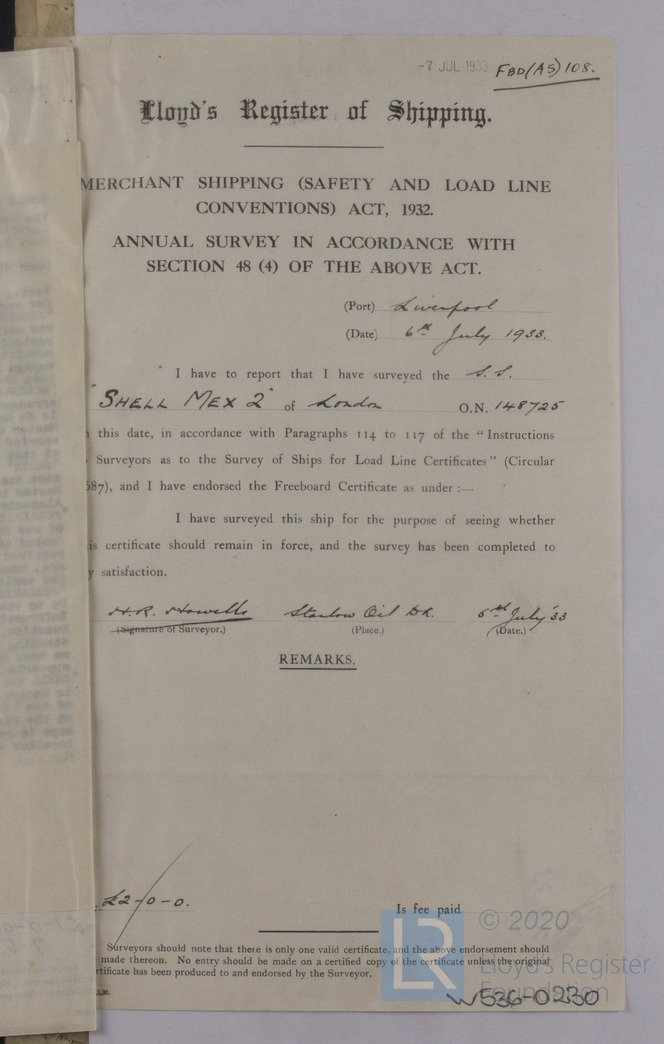 -7 JUL 1933 FBD/(AS) 108.
Lloyd's Register of Shipping.
MERCHANT SHIPPING (SAFETY AND LOAD LINE
CONVENTIONS) ACT, 1932.
ANNUAL SURVEY IN ACCORDANCE WITH
SECTION 48 (4) OF THE ABOVE ACT.
(Port) Liverpool
(Date) 6th July 1933.
I have to report that I have surveyed the S.S.
"SHELL MEX 2" of London O.N. 148725
this date, in accordance with Paragraphs 114 to 117 of the "Instructions
Surveyors as to the Survey of Ships for Load Line Certificates" (Circular
587), and I have endorsed the Freeboard Certificate as under :—
I have surveyed this ship for the purpose of seeing whether
is certificate should remain in force, and the survey has been completed to
y satisfaction.
H.R. Howells Stanlow Oil Dk. 5th July '33
(Signature of Surveyor.) (Place.) (Date.)
REMARKS.
£2-0-0. Is fee paid
Surveyors should note that there is only one valid certificate, and the above endorsement should
made thereon. No entry should be made on a certified copy of the certificate unless the original
rtificate has been produced to and endorsed by the Surveyor.
LR © 2020
Lloyd's Register
Foundation
W536-0230